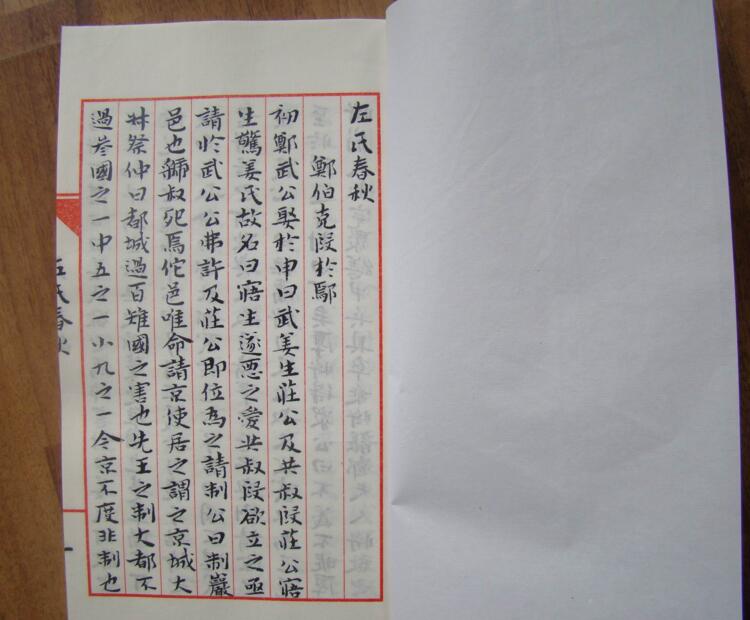 左氏春秋
鄭伯克段於鄢
初鄭武公娶於申曰武姜生莊公及共叔段莊公寤
生驚姜氏故名曰寤生遂惡之愛共叔段欲立之亟
請於武公公弗許及莊公即位為之請制公曰制巖
邑也虢叔死焉佗邑唯命請京使居之謂之京城大
叔祭仲曰都城過百雉國之害也先王之制大都不
過參國之一中五之一小九之一今京不度非制也
左氏春秋
一